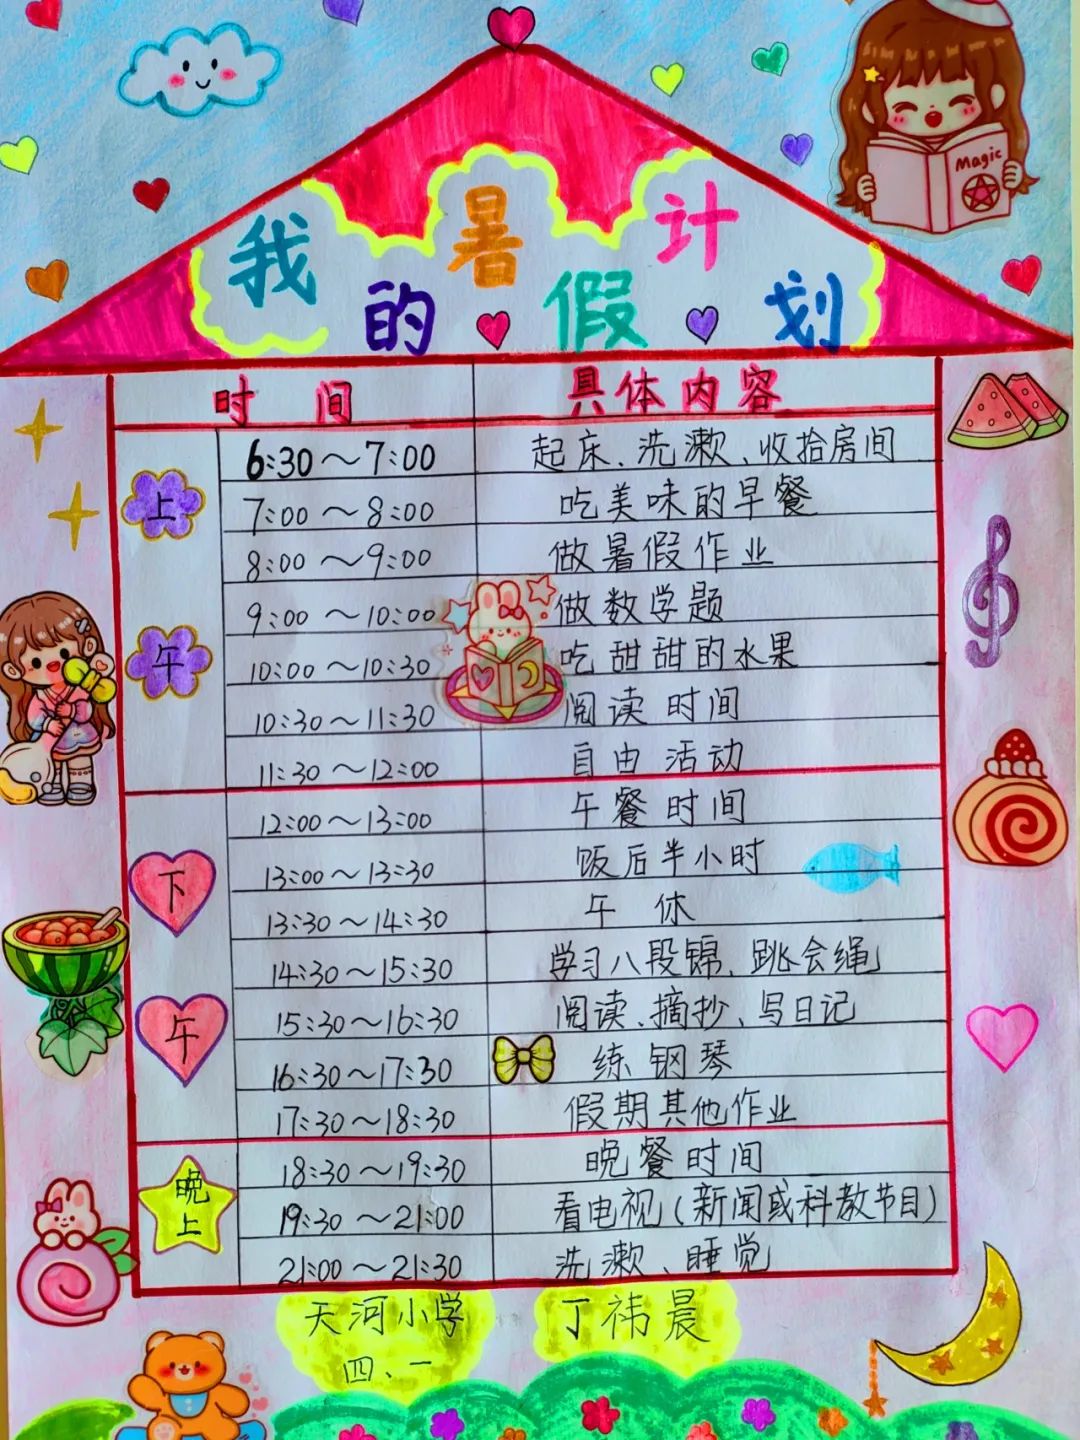 Magic
我的暑假计划
时间 具体内容
上午
6:30～7:00 起床、洗漱、收拾房间
7:00～8:00 吃美味的早餐
8:00～9:00 做暑假作业
9:00～10:00 做数学题
10:00～10:30 吃甜甜的水果
10:30～11:30 阅读时间
11:30～12:00 自由活动
下午
12:00～13:00 午餐时间
13:00～13:30 饭后半小时
13:30～14:30 午休
14:30～15:30 学习八段锦、跳会绳
15:30～16:30 阅读、摘抄、写日记
16:30～17:30 练钢琴
17:30～18:30 假期其他作业
晚上
18:30～19:30 晚餐时间
19:30～21:00 看电视(新闻或科教节目)
21:00～21:30 洗漱、睡觉
天河小学 丁祎晨
四、一